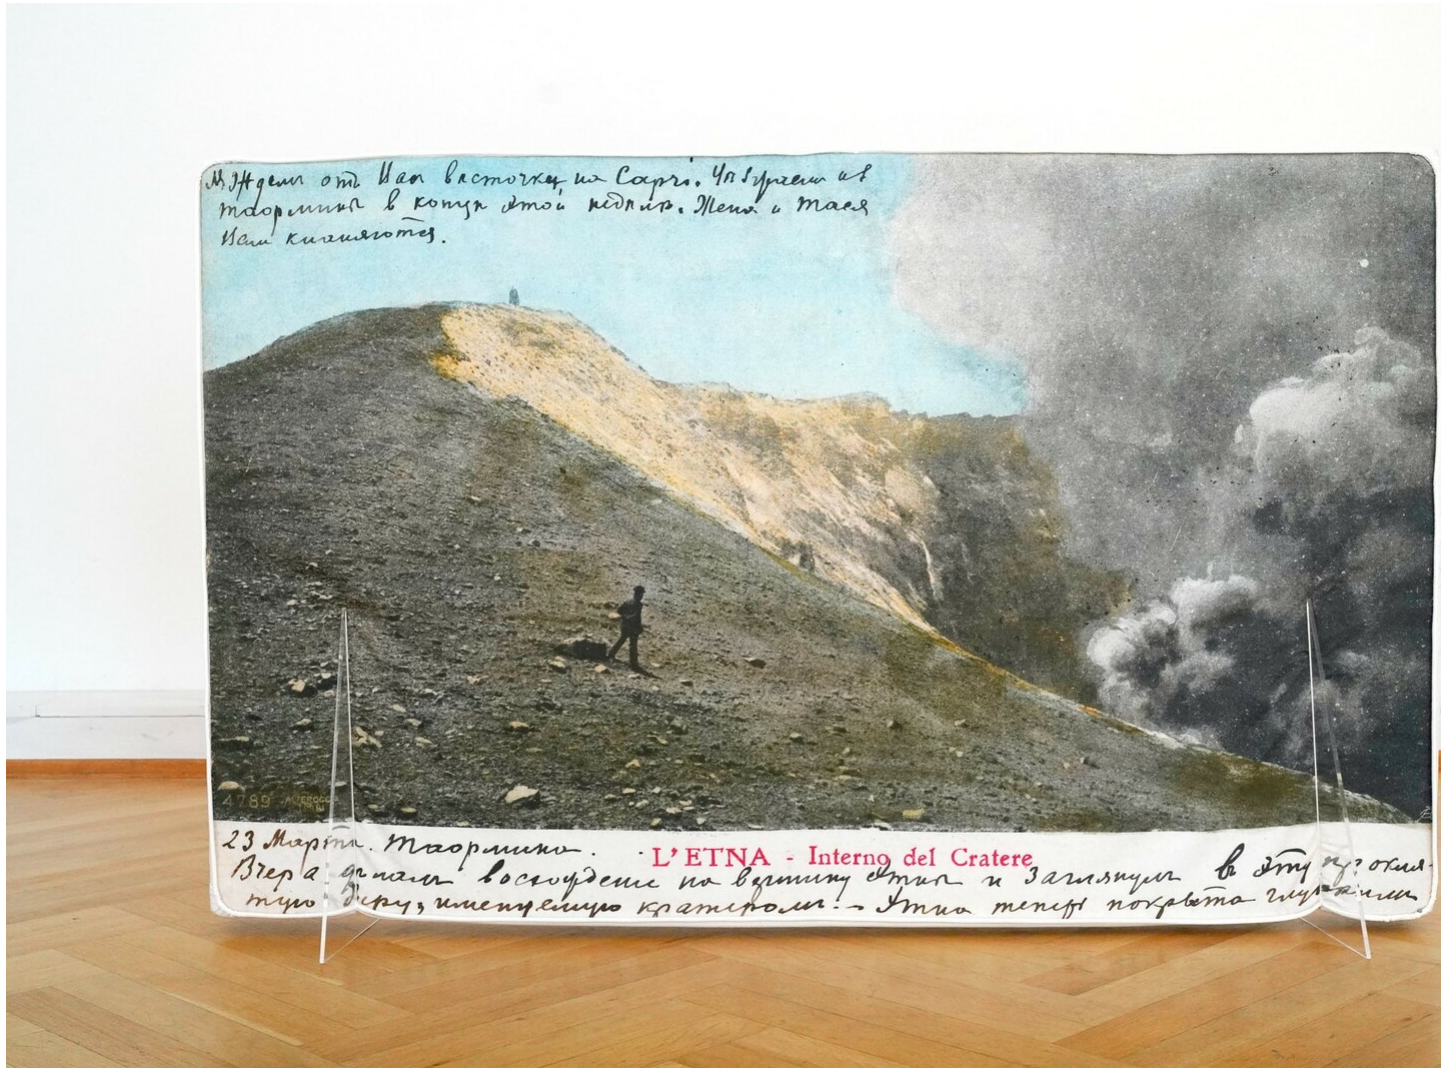 Ждем от Вас весточку на Capri.
Таормины в конце этой недели. Жена и Тася
Вам кланяются.
4789
23 Марта. Таормина.
L'ETNA - Interno del Cratere
Вчера делали восхождение на вершину Этны и заглянули в эту прокля-
тую дыру, именуемую кратером. - Этна теперь покрыта глубокими